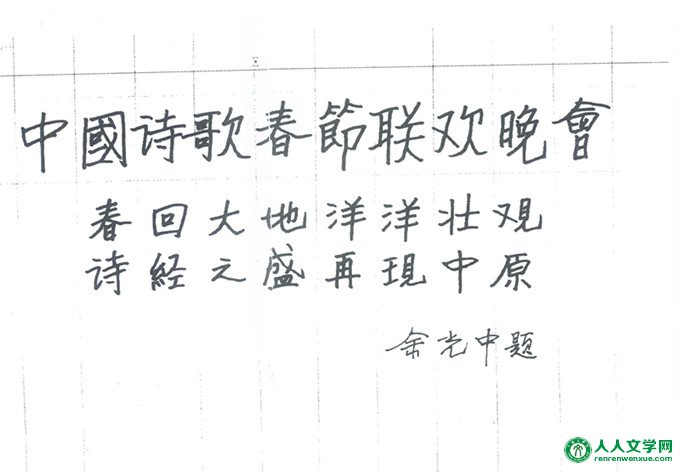 中國诗歌春節联欢晚會
春回大地洋洋壮观
诗経之盛再現中原
余光中题
人人文学网
renrenwenxue.com